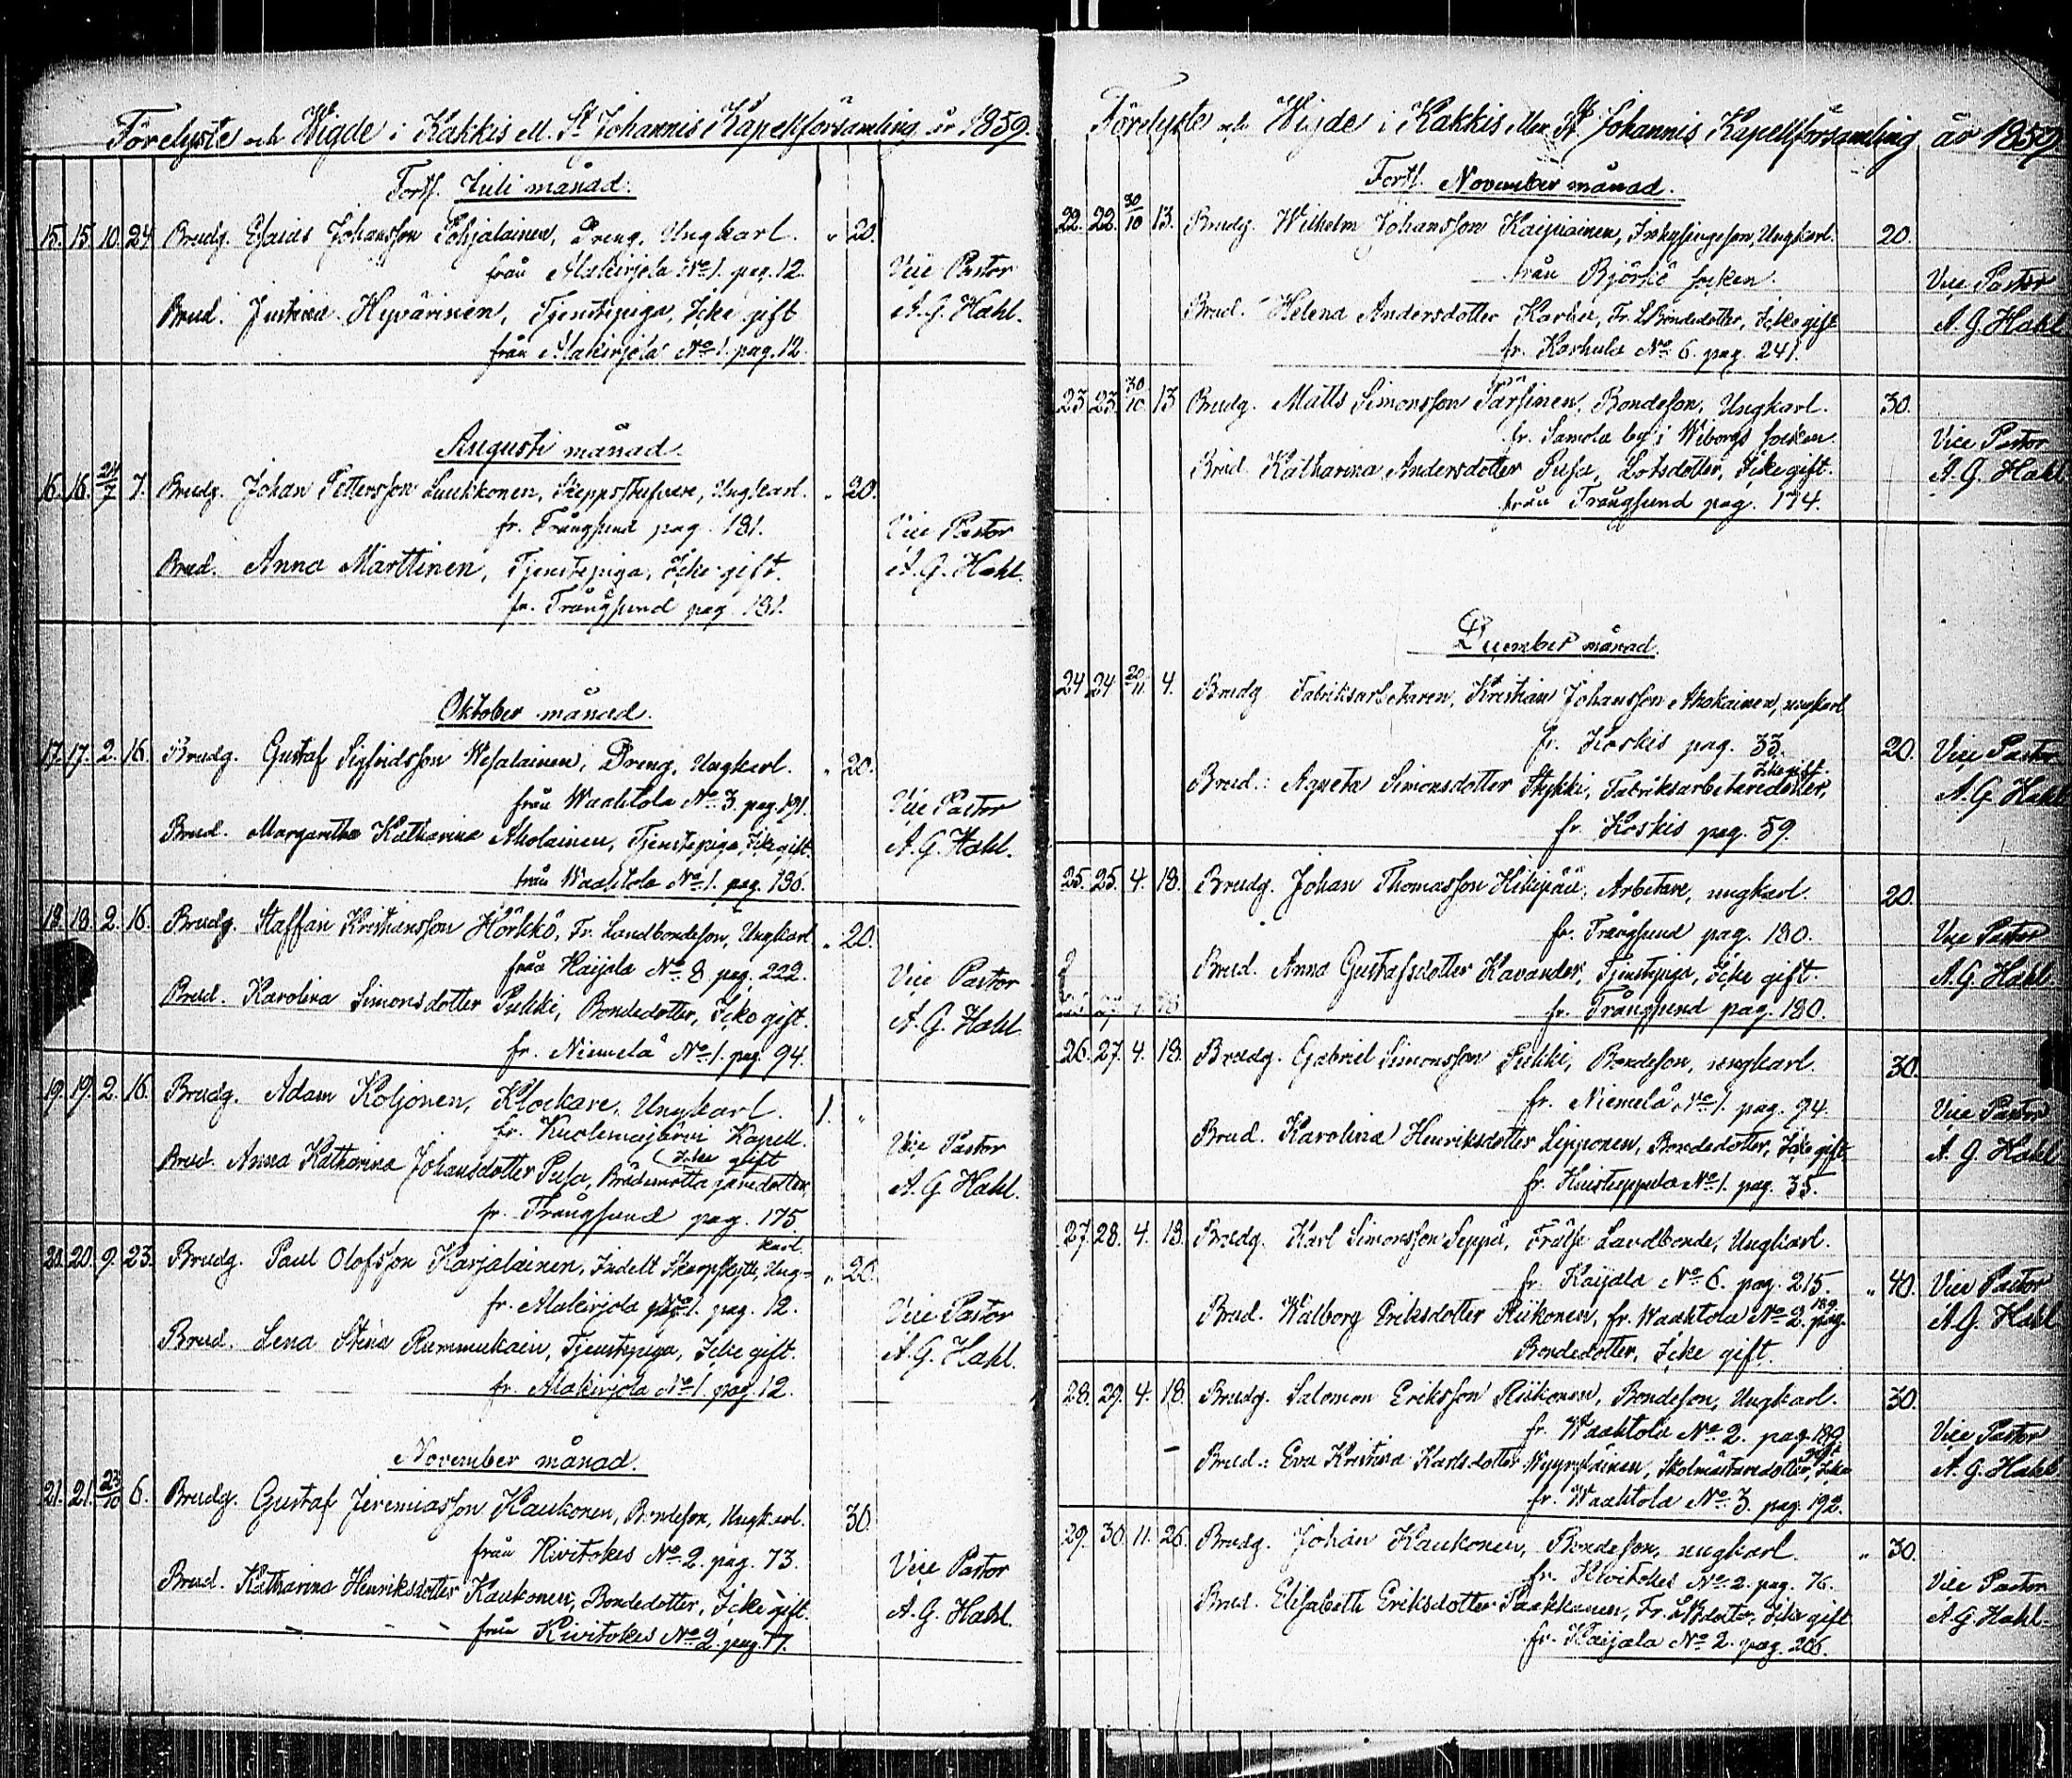 Förelyste och Wigde i Kakkis el. St Johannis Kapellförsamling år 1859.
Forts. Juli månad.
15. 15. 10 24 Brudg. Esaias Johansson Pohjalainen, Dreng, Ungkarl. " 20.
från Alakirjola No 1. pag. 12.
Vice Pastor
Brud. Justina Hyvärinen, Tjenstepiga, Icke gift
A. G. Hahl.
från Alakirjola No 1. pag. 12.
Augusti månad.
16. 16. 24/7 7. Brudg. Johan Pettersson Luukkonen, Ungkarl. " 20.
fr. Trångsund pag. 181.
Vice Pastor
Brud. Anna Marttinen, Tjenstepiga, Icke gift.
A. G. Hahl.
fr. Trångsund pag. 181.
Oktober månad.
17. 17. 2. 16. Brudg. Gustaf Sigfridsson Wesalainen, Dreng, Ungkarl. " 20.
från Waahtola No 3. pag. 191.
Vice Pastor
Brud. Margaretha Katharina Aholainen, Tjenstepiga, Icke gift.
A. G. Hahl.
från Waahtola No 1. pag. 186.
18. 18. 2. 16. Brudg. Staffan Kristiansson Hörkkö, Fr. Landbondeson, Ungkarl " 20.
från Kaijala No 8 pag. 222.
Vice Pastor
Brud. Karolina Simonsdotter Pukki, Bondedotter, Icke gift.
A. G. Hahl
fr. Niemelä No 1. pag. 94.
19. 19. 2. 16. Brudg. Adam Koljonen, Klockare, Ungkarl. 1. "
fr. Kuolemajärvi Kapell.
Vice Pastor
(Icke gift
Brud. Anna Katharina Johansdotter Pusa,
A. G. Hahl.
fr. Trångsund pag. 175.
karl.
20. 20. 9. 23. Brudg. Paul Olofsson Karjalainen, Indelt Skarpskytt, Ung= " 20.
fr. Alakirjola No 1. pag. 12.
Vice Pastor
Brud. Lena Stina Rummukain, Tjenstepiga, Icke gift.
A. G. Hahl.
fr. Alakirjola No 1. pag. 12.
November månad.
21. 21. 23/10 6. Brudg. Gustaf Jeremiasson Kaukonen, Bondeson, Ungkarl. 30.
från Kivitokes No 2. pag. 73.
Vice Pastor
Brud. Katharina Henriksdotter Kaukonen, Bondedotter, Icke gift.
A. G. Hahl.
från Kivitokes No 2. pag. 77.
Förelyste och Wigde i Kakkis eller St Johannis Kapellförsamling år 1859.
Forts. November månad.
22. 22. 30/10 13. Brudg. Wilhelm Johansson Kaipiainen, Ungkarl. 20.
från Björkö socken.
Vice Pastor
Brud. Helena Andersdotter Karhu, Fr. L Bondedotter, Icke gift
A. G. Hahl
fr. Karhula No 6. pag. 241.
23 23. 30/10. 13 Brudg. Matts Simonsson Pärsinen, Bondeson, Ungkarl. 30.
fr. Samola by i Wiborgs socken.
Vice Pastor
Brud. Katharina Andersdotter Pusa, Lotsdotter, Icke gift.
A. G. Hahl
från Trångsund pag. 174.
December månad.
24 24 20/11 4. Brudg. Fabriksarbetaren, Kristian Johansson Ahokainen, ungkarl
fr. Koskis pag. 33. 20. Vice Pastor
Icke gift.
Brud. Agneta Simonsdotter Stykki, Fabriksarbetaredotter,
A. G. Hahl
fr. Koskis pag. 59.
25. 25. 4. 18. Brudg. Johan Thomasson Hikipää, Arbetare, ungkarl. 20.
fr. Trångsund pag. 180.
Vice Pastor
Brud. Anna Gustafsdotter Kavander, Tjenstepiga, Icke gift.
A. G. Hahl
fr. Trångsund pag. 180.
26. 27. 4. 18. Brudg. Gabriel Simonsson Pukki, Bondeson, ungkarl. 30.
fr. Niemelä No 1. pag. 94.
Vice Pastor
Brud. Karolina Henriksdotter Lipponen, Bondedotter, Icke gift
A. G. Hahl
No 1. pag. 35.
27. 28. 4. 18. Brudg. Karl Simonsson Seppä, Frälse Landbonde, Ungkarl.
fr. Kaijala No 6. pag. 215. " 40. Vice Pastor
189.
Brud. Walborg Eriksdotter Riikonen, fr. Waahtola No 2. pag.
A. G. Hahl
Bondedotter, Icke gift.
28. 29. 4. 18. Brudg. Salomon Eriksson Riikonen, Bondeson, Ungkarl. 30.
fr. Waahtola No 2. pag. 189.
Vice Pastor
gift
Brud. Eva Kristina Karlsdotter Skolmästaredotter, Icke
A. G. Hahl
fr. Waahtola No 3. pag. 192.
29. 30. 11. 26. Brudg. Johan Kaukonen, Bondeson, ungkarl. " 30.
fr. Kivitokes No 2. pag. 76.
Vice Pastor
Brud. Elisabeth Eriksdotter Paakkanen, Icke gift
A. G. Hahl.
fr. Kaijala No 2. pag. 206.